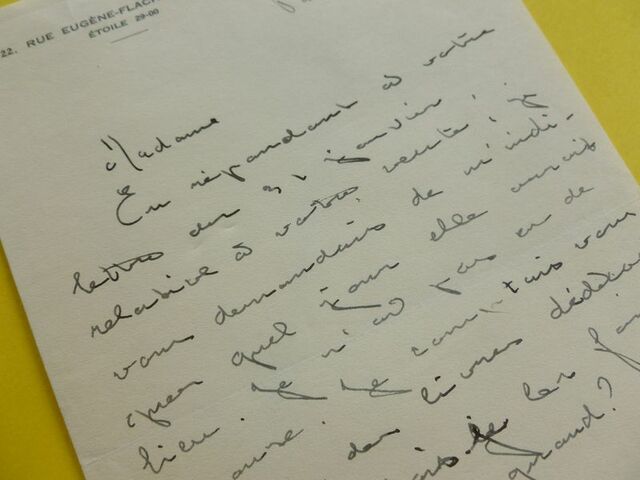 22. RUE EUGÈNE-FLACH
ÉTOILE 29-00
Madame
En répondant à votre
lettre du 21 janvier,
relative à votre vente, je
vous demandais de m'indi-
quer quel jour elle aurait
lieu. Je n'ai pas eu de
Je comptais vous
des livres
les
quand?